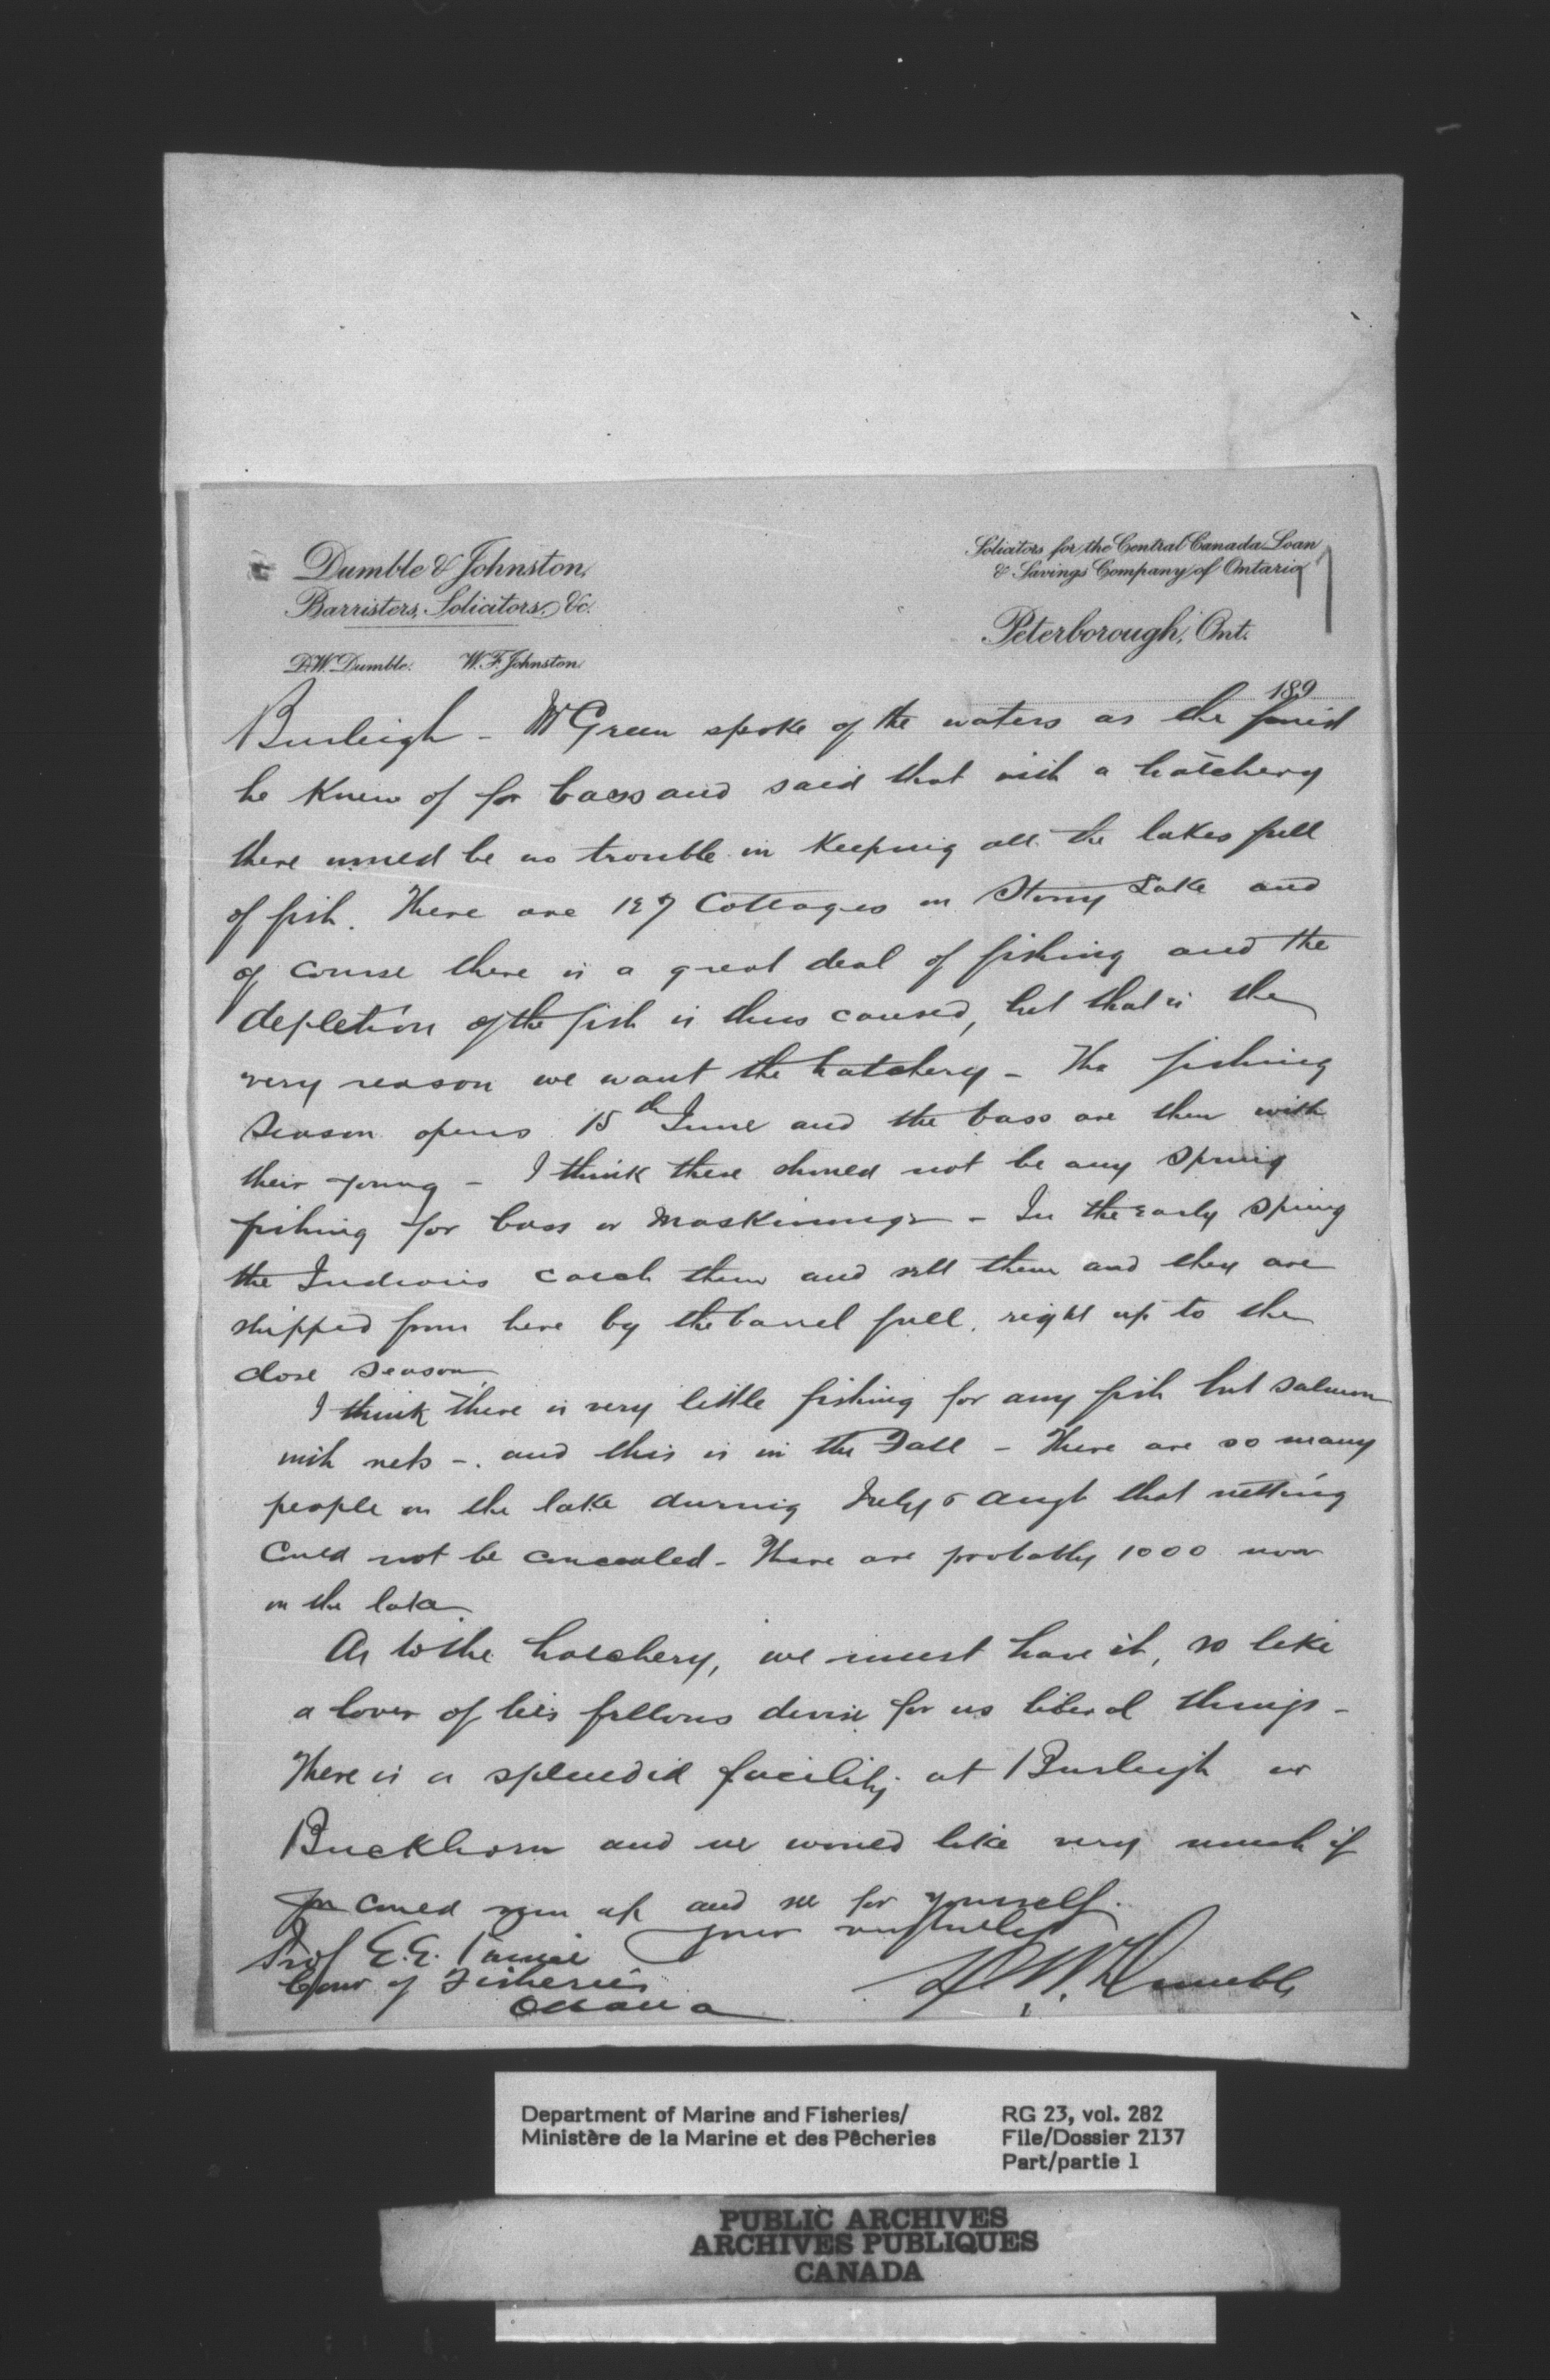 Dumble & Johnston,
Barristers, Solicitors, &c.
D.W. Dumble. W.F. Johnston
Solicitors for the Central Canada Loan
& Savings Company of Ontario
Peterborough, Ont.
189
Burleigh - Mr Green spoke of the waters as the
he knew of for bass and said that with a hatchery
there would be no trouble in keeping all the lakes full
of fish. There are 127 Cottages on Stony Lake and
of course there is a great deal of fishing and the
depletion of the fish is thus caused, but that is the
very reason we want the hatchery - The fishing
season opens 15th June and the bass are then with
their young - I think there should not be any spring
fishing for bass or Maskinonge - In the early spring
the Indians catch them and sell them and they are
shipped from here by the barrel full, right up to the
close season
I think there is very little fishing for any fish but salmon
with nets - and this is in the Fall - There are so many
people on the lake during July & Augt that netting
could not be concealed - There are probably 1000 now
on the lake.
As to the hatchery, we must have it, so like
a lover of his fellows devise for us liberal things -
There is a splendid facility at Burleigh or
Buckhorn and we would like very much if
you could run up and see for yourself.
Yours respectfully
D.W. Dumble
Prof E.E. Prince
Comr of Fisheries
Ottawa
Department of Marine and Fisheries/
Ministère de la Marine et des Pêcheries
RG 23, vol. 282
File/Dossier 2137
Part/partie 1
PUBLIC ARCHIVES
ARCHIVES PUBLIQUES
CANADA